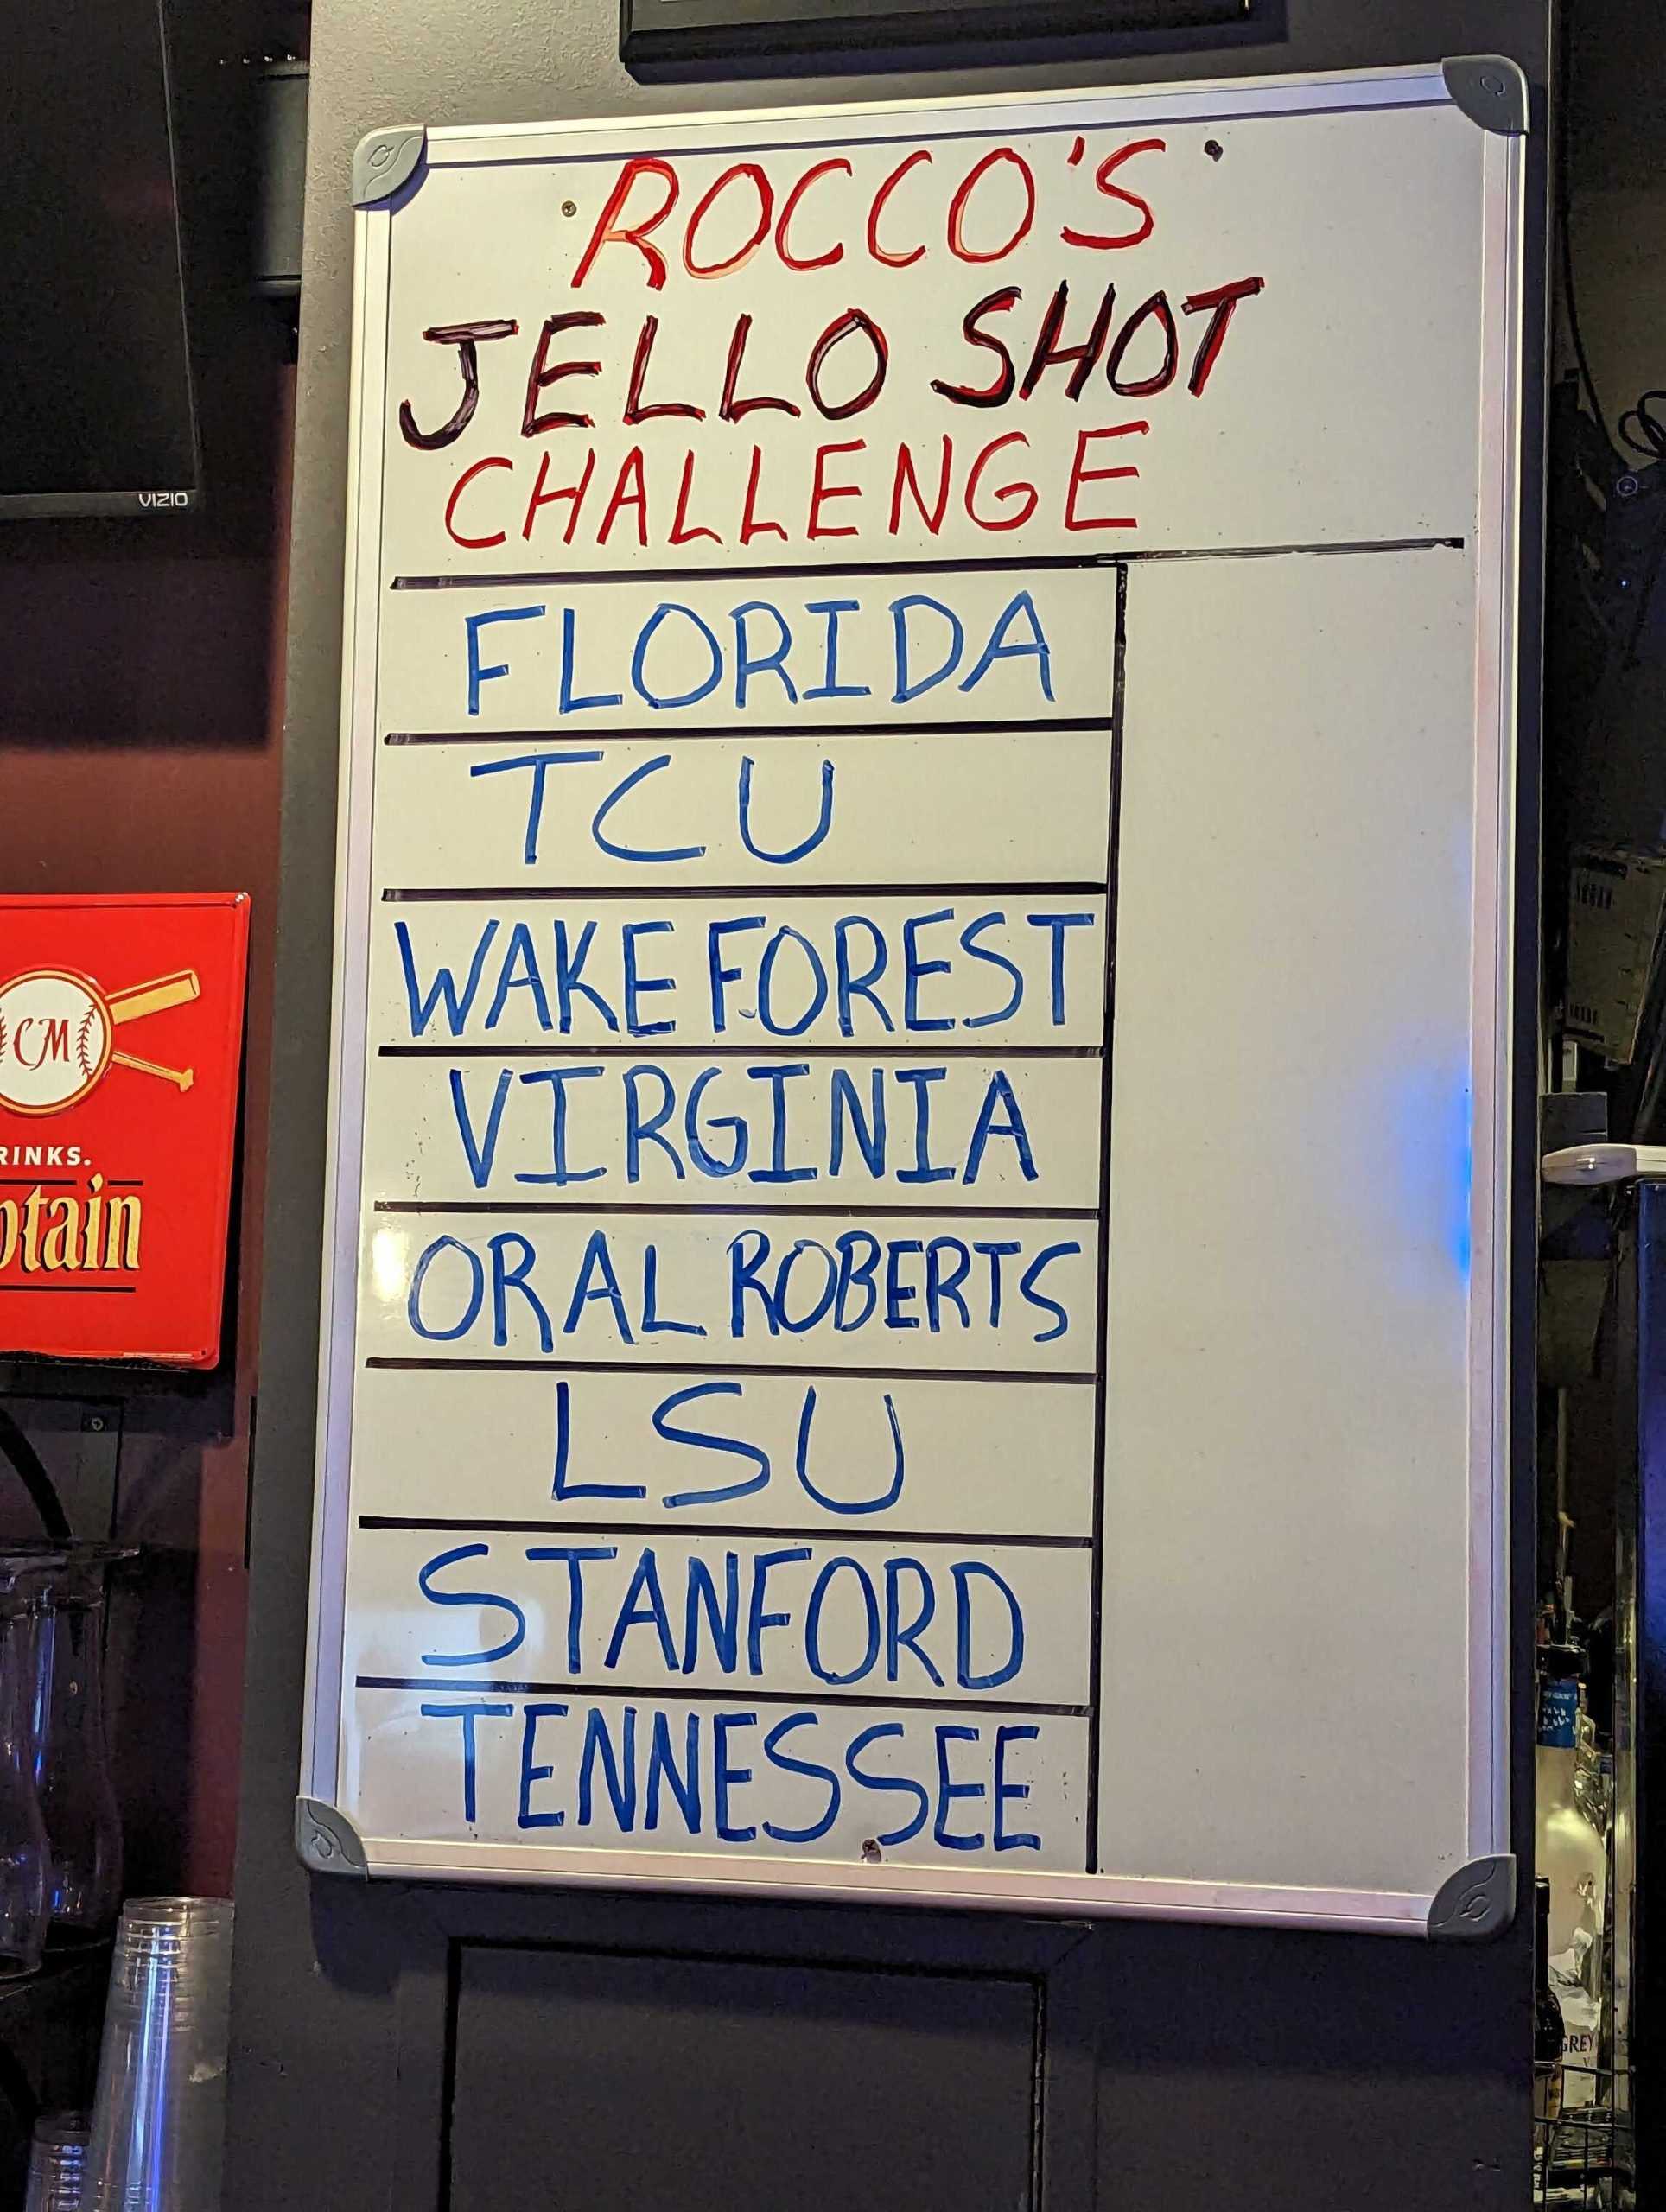 ROCCO'S
JELLO SHOT
CHALLENGE
FLORIDA
TCU
WAKE FOREST
VIRGINIA
ORAL ROBERTS
LSU
STANFORD
TENNESSEE
VIZIO
CM
RINKS.
ptain
GREY